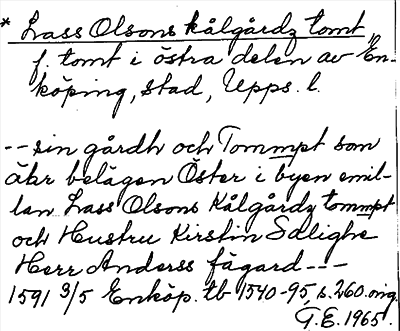 * Lass Olsons kålgårdz tomt,
f. tomt i östra delen av En-
köping, stad, Upps. l.
-- sin gårdh och Tommpt som
äkr belägen Öster i byen emil-
lan Lass Olsons Kålgårdz tommpt
och Hustru Kirstin Salighe
Herr Anderss fågard ---
1591 3/5 Enköp. tb 1540-95, s. 260. orig.
G.E. 1965.